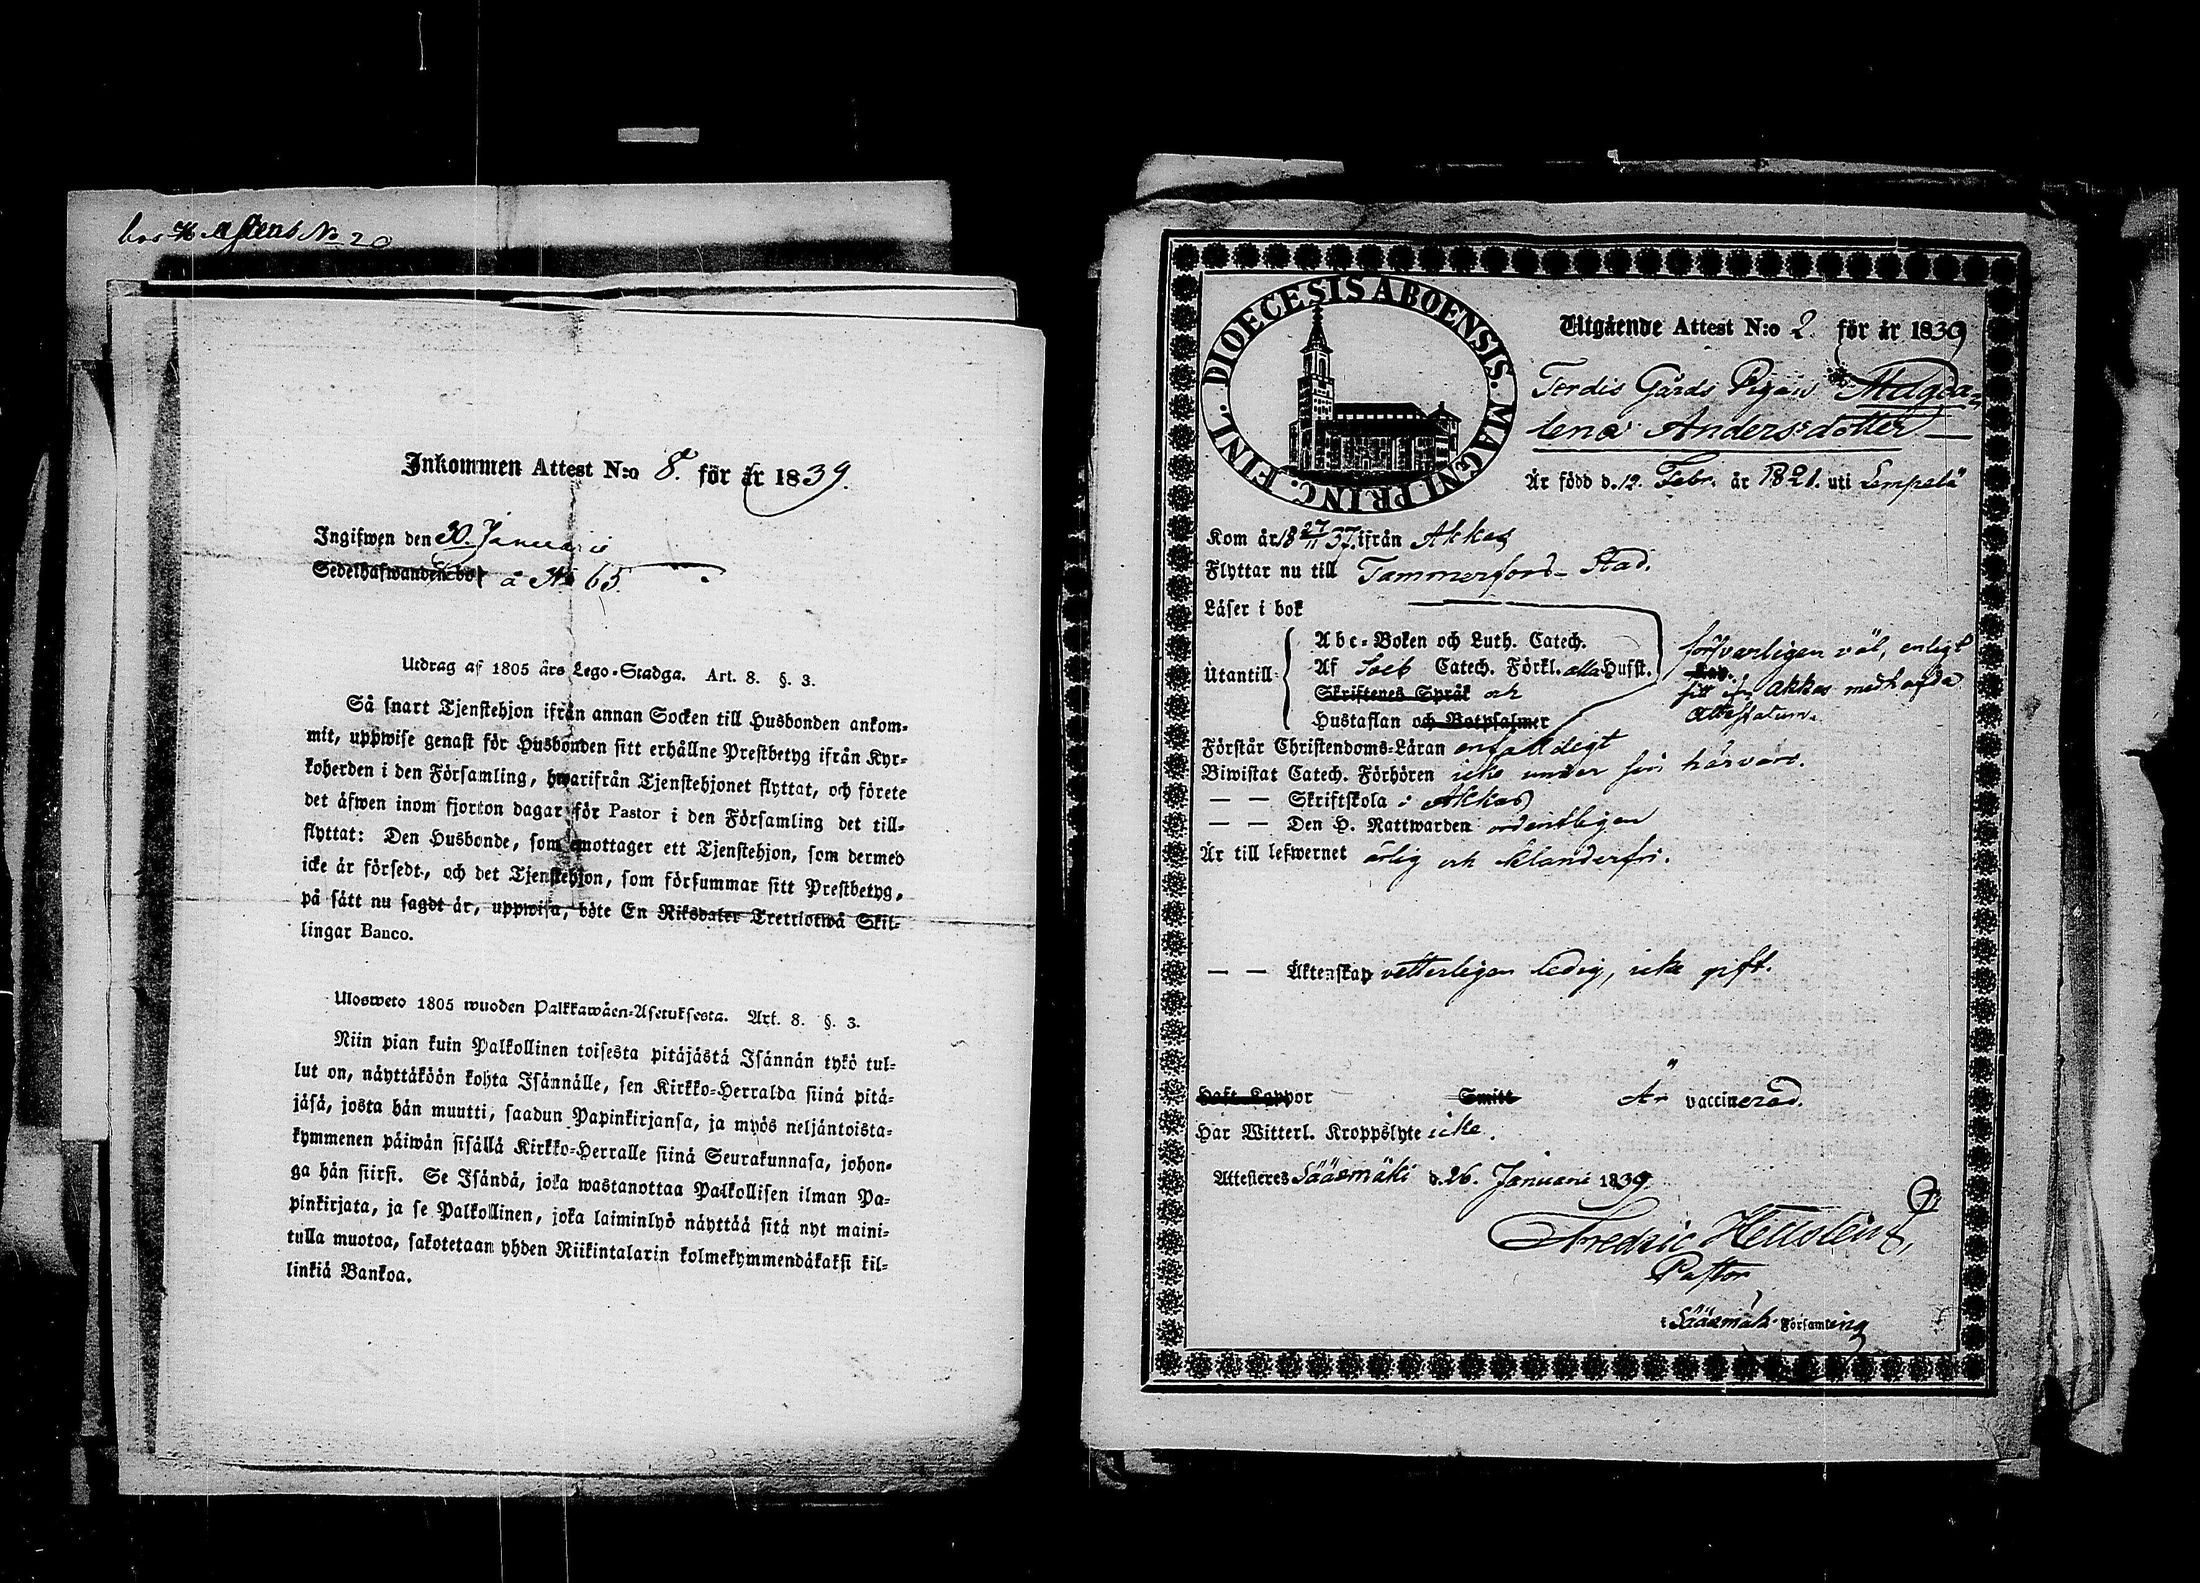 Inkommen Attest N:o 8. för år 1839.
Ingifwen den 30. Januarii
Sedelhafwanden bor å No 65.
Utdrag af 1805 års Lego-Stadga. Art. 8. §. 3.
Så snart Tjenstehjon ifrån annan Socken till Husbonden ankom-
mit, uppwise genast för Husbonden sitt erhållne Prestbetyg ifrån Kyr-
koherden i den Församling, hwarifrån Tjenstehjonet flyttat, och förete
det äfwen inom fjorton dagar för Pastor i den Församling det till-
flyttat: Den Husbonde, som emottager ett Tjenstehjon, som dermed
icke är försedt, och det Tjenstehjon, som försummar sitt Prestbetyg,
på sätt nu sagdt är, uppwisa, böte En Riksdaler Trettiotwå Skil-
lingar Banco.
Ulosweto 1805 wuoden Palkkawäen-Asetuksesta. Art. 8. §. 3.
Niin pian kuin Palkollinen toisesta pitäjästä Isännän tykö tul-
lut on, näyttäköön kohta Isännälle, sen Kirkko-Herralda siinä pitä-
jäsä, josta hän muutti, saadun Papinkirjansa, ja myös neljäntoista-
kymmenen päiwän sisällä Kirkko-Herralle siinä Seurakunnasa, johon-
ga hän siirsi. Se Isändä, joka wastanottaa Palkollisen ilman Pa-
pinkirjata, ja se Palkollinen, joka laiminlyö näyttää sitä nyt maini-
tulla muotoa, sakotetaan yhden Riikintalarin kolmekymmendäkaksi kil-
linkiä Bankoa.
DIOECESIS ABOENSIS. MAGNI PRINC. FINL.
Utgående Attest N:o 2. för år 1839
Gårds Pigan Magda-
lena Andersdotter
Är född d. 12. Febr. år 1821. uti Lempelä
Kom år 18 27/11 37. ifrån Akkas
Flyttar nu till Tammerfors Stad.
Läser i bok
Abc-Boken och Luth. Catech.
Utantill Af Soeb Catech. Förkl. alla Hufst.
Skriftenes Språk och
Hustaflan och Botpsalmer
försvarligen väl, enligt
sitt ifrån Akkas medhafda
Attestatum.
Förstår Christendoms-Läran enfaldigt
Biwistat Catech. Förhören icke under sin härvaro.
— — Skriftskola i Akkas
— — Den H. Nattwarden ordentligen
Är till lefwernet ärlig och klanderfri.
— — Äktenskap vetterligen ledig, icke gift.
Haft Koppor Smitt Är vaccinerad.
Har Witterl. Kroppslyte icke.
Attesteres Sääsmäki d. 26. Januarii 1839
Fredric
Pastor
i Sääsmäki Församling